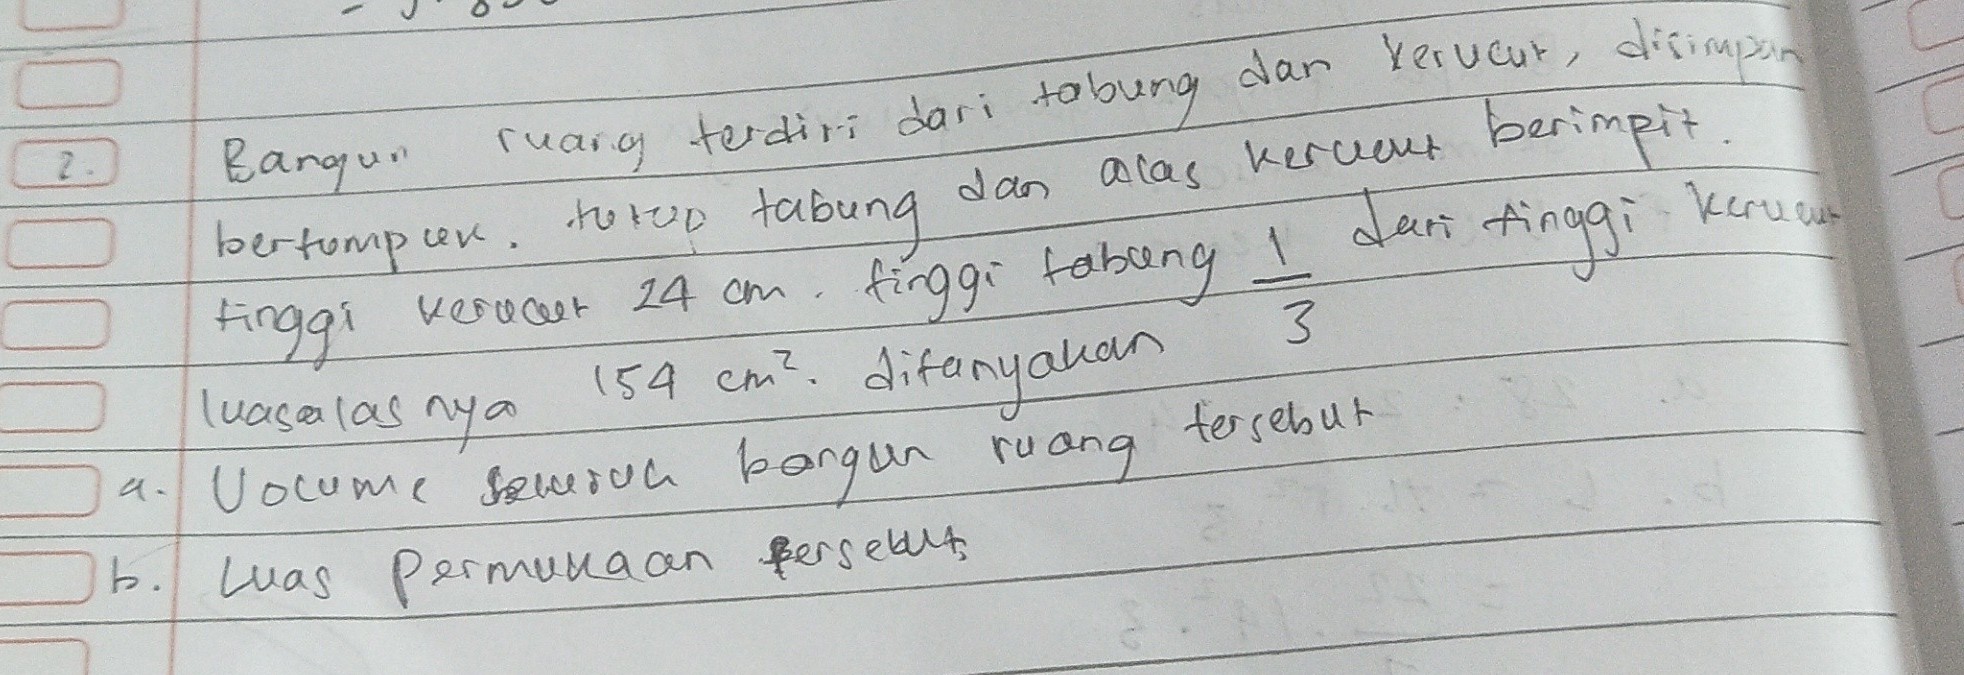 2. Bangun ruang terdiri dari tabung dan kerucut, disimpan
bertumpuk. tutup tabung dan alas kerucut berimpit.
tinggi kerucut 24 cm. tinggi tabung 1/3 dari tinggi kerucut
luasalas nya 154 cm². ditanyakan
a. Volume seluruh bangun ruang tersebut
b. Luas Permukaan tersebut